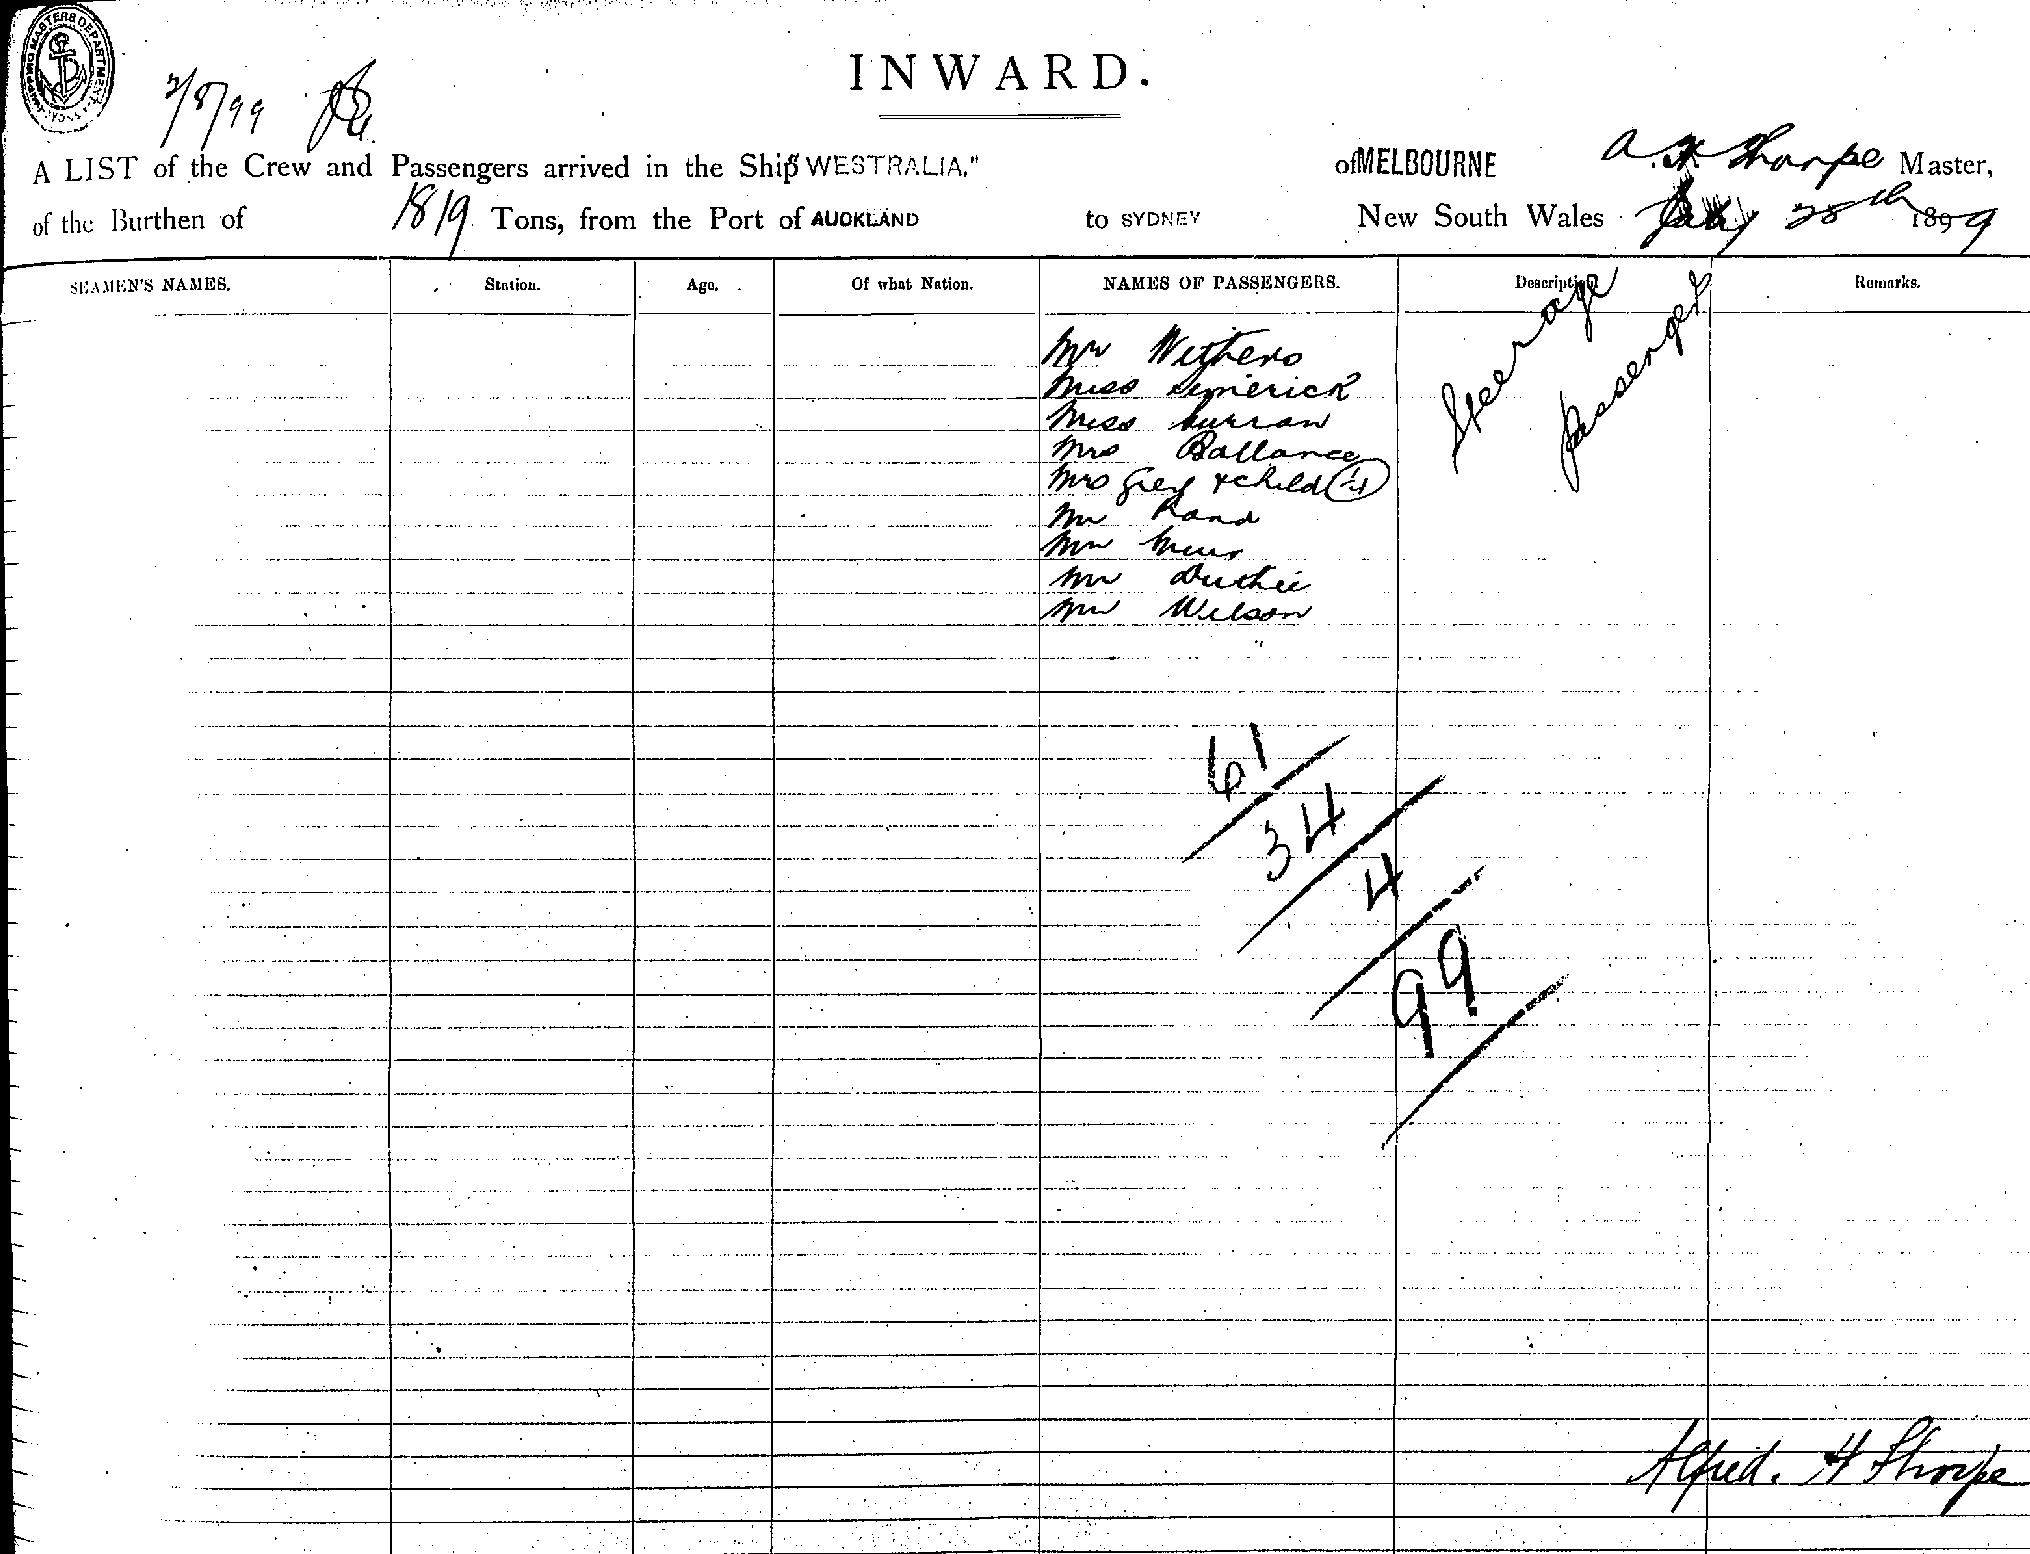 SHIPPING MASTERS DEPARTMENT SYDNEY
2/8/99
INWARD.
A LIST of the Crew and Passengers arrived in the Ship "WESTRALIA," of MELBOURNE A. H. Thorpe Master,
of the Burthen of 1819 Tons, from the Port of AUCKLAND to SYDNEY New South Wales July 28th 1899
SEAMEN'S NAMES. Station. Age. Of what Nation. NAMES OF PASSENGERS. Description Remarks.
Steerage
Passengers
Mr Withers
Miss Limerick
Miss Curran
Mrs Ballance
Mrs Grey & child
Mr Rand
Mr Muir
Mr Duthie
Mr Wilson
61
34
4
99
Alfred. H Thorpe